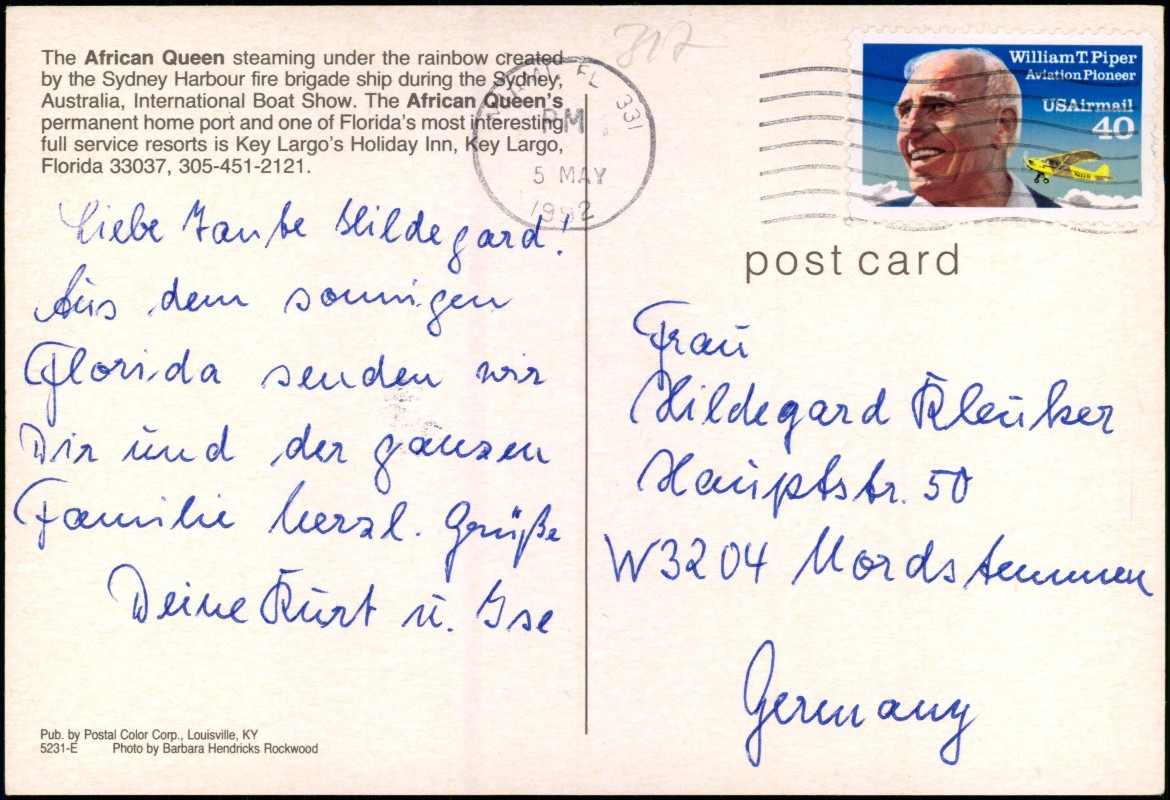 The African Queen steaming under the rainbow created
by the Sydney Harbour fire brigade ship during the Sydney,
Australia, International Boat Show. The African Queen's
permanent home port and one of Florida's most interesting
full service resorts is Key Largo's Holiday Inn, Key Largo,
Florida 33037, 305-451-2121.
317
FL 331
PM
5 MAY
1992
William T. Piper
Aviation Pioneer
USAirmail
40
post card
Liebe Tante Hildegard!
Aus dem sonnigen
Florida senden wir
Dir und der ganzen
Familie herzl. Grüße
Deine Kurt u. Ise
Frau
Hildegard Kleuker
Hauptstr. 50
W3204 Nordstemmen
Germany
Pub. by Postal Color Corp., Louisville, KY
5231-E Photo by Barbara Hendricks Rockwood